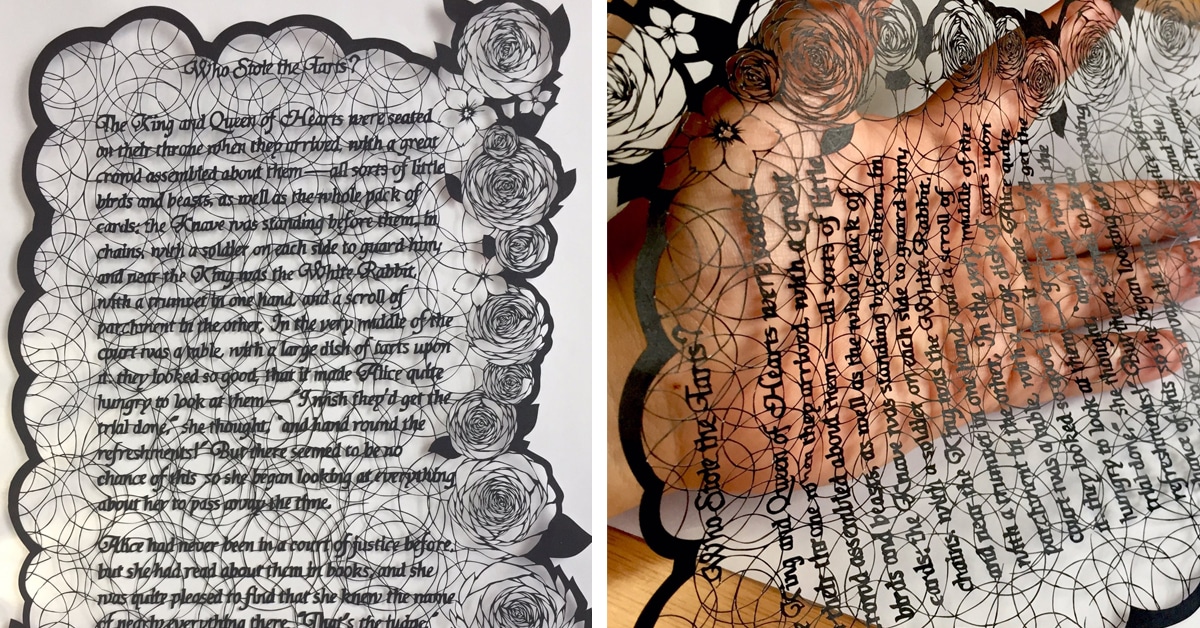 Who Stole the Tarts?
The King and Queen of Hearts were seated
on their throne when they arrived, with a great
crowd assembled about them — all sorts of little
birds and beasts, as well as the whole pack of
cards: the Knave was standing before them, in
chains, with a soldier on each side to guard him;
and near the King was the White Rabbit,
with a trumpet in one hand, and a scroll of
parchment in the other. In the very middle of the
court was a table, with a large dish of tarts upon
it: they looked so good, that it made Alice quite
hungry to look at them — "I wish they'd get the
trial done," she thought, "and hand round the
refreshments!" But there seemed to be no
chance of this so she began looking at everything
about her to pass away the time.
Alice had never been in a court of justice before,
but she had read about them in books, and she
was quite pleased to find that she knew the name
of nearly everything there. "That's the judge,"
Who Stole the Tarts?
King and Queen of Hearts were seated
their throne when they arrived, with a great
crowd assembled about them — all sorts of little
birds and beasts, as well as the whole pack of
cards: the Knave was standing before them, in
chains, with a soldier on each side to guard him;
and near the King was the White Rabbit,
with a trumpet in one hand, and a scroll of
parchment in the other. In the very middle of the
court was a table, with a large dish of tarts upon
it: they looked so good, that it made Alice quite
hungry to look at them — get the
trial done," she thought, the
refreshments!" But there seemed to be
of this looking at everything